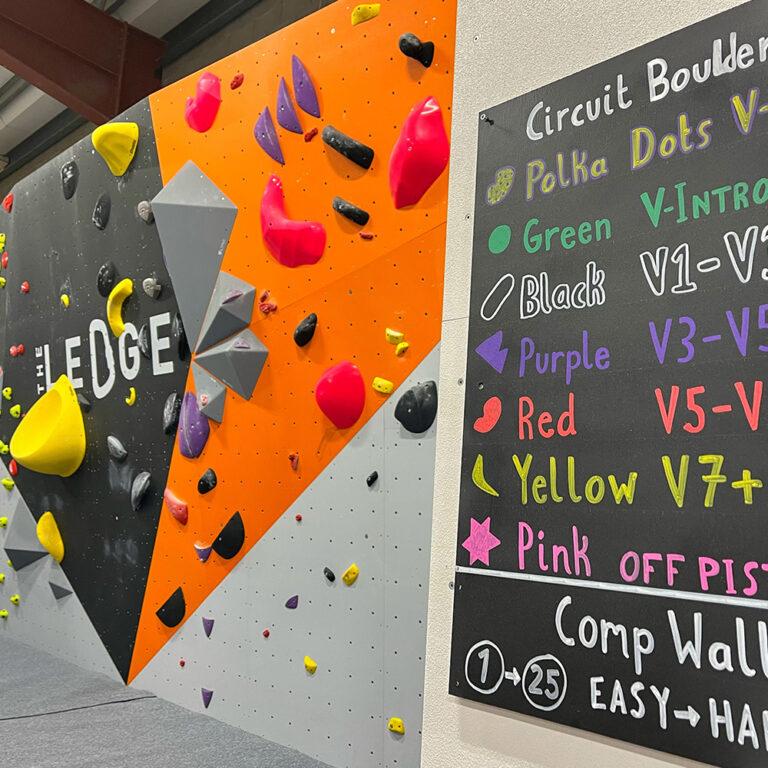 THE LEDGE
Circuit Boulder
Polka Dots V-
Green V-INTRO
Black V1-V3
Purple V3-V5
Red V5-V
Yellow V7+
Pink OFF PIST
Comp Wall
1→25
EASY→HA